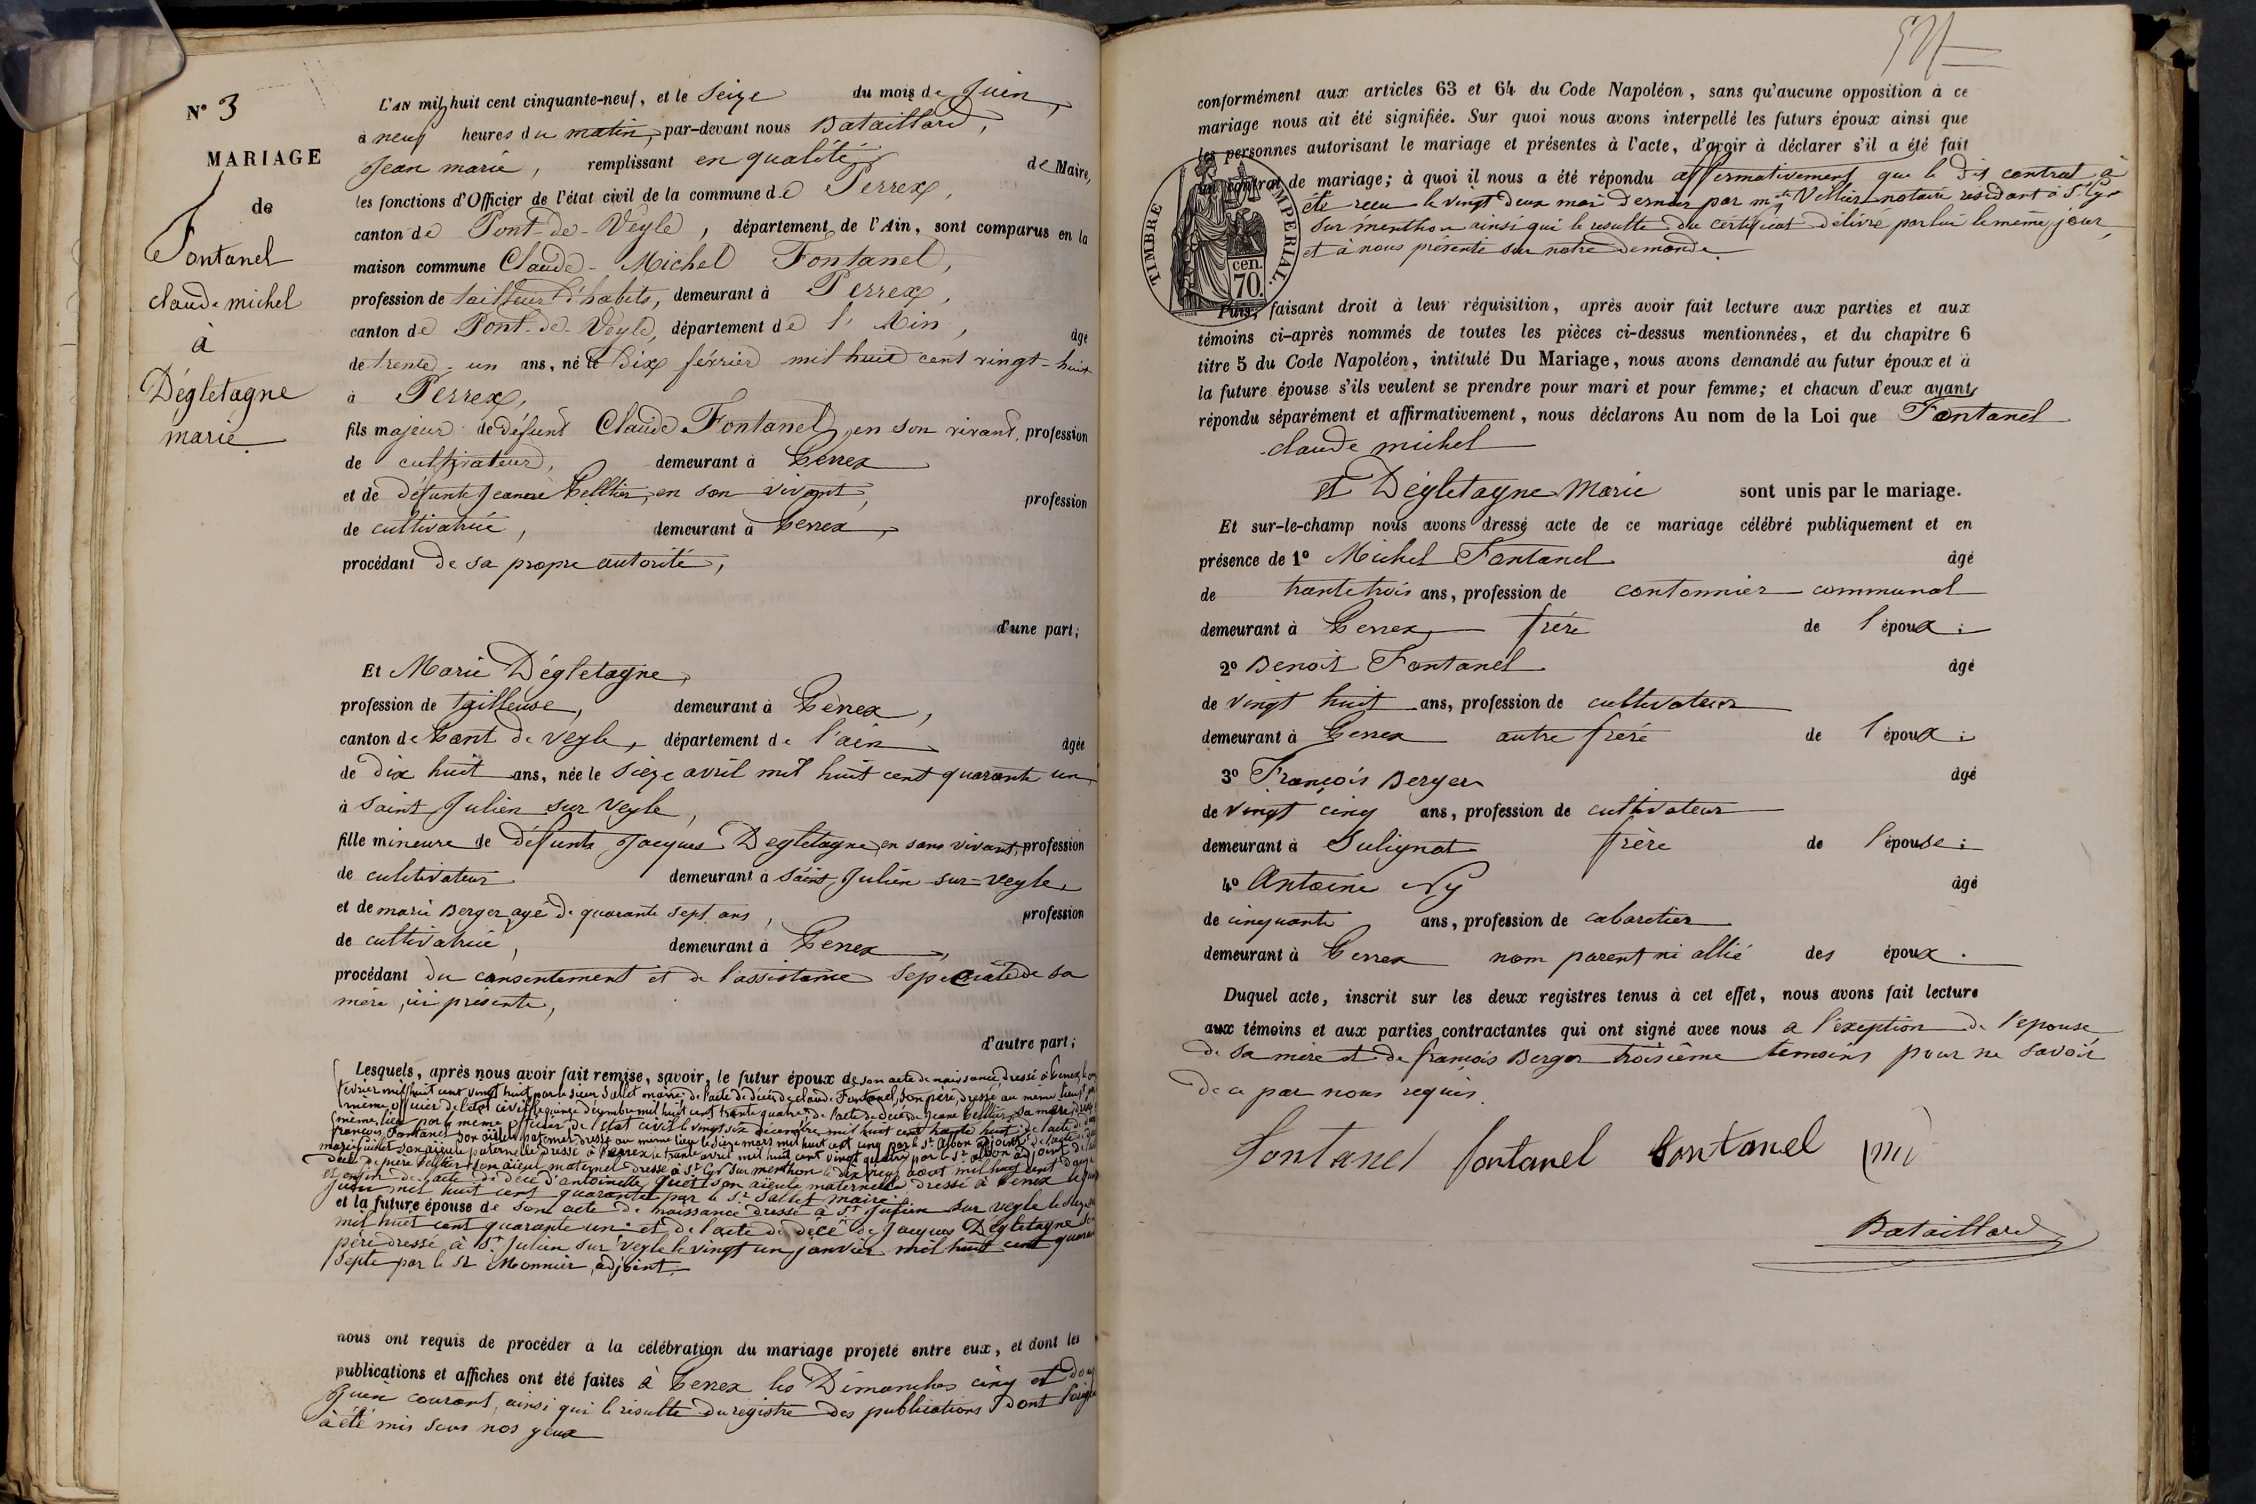 N° 3
MARIAGE
de
Fontanel
claude michel
à
Dégletagne
marie
L'AN mil huit cent cinquante-neuf, et le Seize du mois de Juin,
à neuf heures du matin, par-devant nous Bataillard,
Jean marie, remplissant en qualité de Maire,
les fonctions d'Officier de l'état civil de la commune de Perrex,
canton de Pont-de-Veyle, département de l'Ain, sont comparus en la
maison commune Claude-Michel Fontanel,
profession de tailleur d'habits, demeurant à Perrex,
canton de Pont-de-Veyle, département de l'Ain, âgé
de trente-un ans, né le Dix février mil huit cent vingt-huit
à Perrex,
fils majeur de défunt Claude Fontanel, en son vivant, profession
de cultivateur, demeurant à Perrex
et de défunte Jeanne Pelltier, en son vivant, profession
de cultivatrice, demeurant à Perrex,
procédant de sa propre autorité,
d'une part;
Et Marie Dégletagne,
profession de tailleuse, demeurant à Perrex,
canton de Pont de Veyle, département de l'ain âgée
de Dix huit ans, née le Sieze avril mil huit cent quarante un,
à Saint Julien sur Veyle,
fille mineure de défunte Jacques Degletagne, en sons vivant, profession
de cultivateur demeurant à Saint Julien-sur-Veyle,
et de marie Berger agé de quarante sept ans, profession
de cultivatrice, demeurant à Perrex,
procédant du consentement et de l'assistance de sa
mère, ici présente,
d'autre part;
Lesquels, après nous avoir fait remise, savoir, le futur époux de son acte de naissance, dressé à Perrex
février mil huit cent vingt huit par le sieur Sallet maire, de l'acte de décés de claude Fontanel, son père, dressé au même lieu
même officier de l'état civil le quinze décembre mil huit cent trente quatre, de l'acte de décés de Jeane Pelltier, sa mère
même lieu par le même officier de l'état civil le vingt six décembre mil huit cent trente huit, de l'acte de
françois Fontanel son aïeul paternel dressé au même lieu le seize mars mil huit cent cinq par le Sr Albon adjoint, de l'acte
marie son aïeule paternelle dressé à Perrex le trente avril mil huit cent vingt quatre par le Sr Albon adjoint
décés de pierre Pelltier son aïeul maternel dressé à St Cyr sur menthon le dix neuf aout mil huit cent
et enfin de l'acte de décé d'antoinette son aïeule maternelle dressé à Perrex le
Juin mil huit cent quarante par le Sr Sallet maire.
et la future épouse de son acte de naissance dressé à St Julien sur veyle le
mil huit cent quarante un et de l'acte de décé de Jacques Dégletagne son
père dressé à St Julien sur Veyle le vingt un janvier mil huit cent
septe par le Sr Monnier, adjoint.
nous ont requis de procéder à la célébration du mariage projeté entre eux, et dont les
publications et affiches ont été faites à Perrex les Dimanches cinq et
Juin courant, ainsi qui le résulte du registre des publications dont
à été mis sous nos yeux
conformément aux articles 63 et 64 du Code Napoléon, sans qu'aucune opposition à ce
mariage nous ait été signifiée. Sur quoi nous avons interpellé les futurs époux ainsi que
les personnes autorisant le mariage et présentes à l'acte, d'avoir à déclarer s'il a été fait
un contrat de mariage; à quoi il nous a été répondu affirmativement que le dit contrat à
été recu le vingt deux mai dernier par mtre Vellier notaire residant à St Cyr
sur menthon ainsi qui le resulte du certificat délivré par lui le même jour
et à nous présenté sur notre demande.
TIMBRE IMPERIAL.
70 cen.
Puis, faisant droit à leur réquisition, après avoir fait lecture aux parties et aux
témoins ci-après nommés de toutes les pièces ci-dessus mentionnées, et du chapitre 6
titre 5 du Code Napoléon, intitulé Du Mariage, nous avons demandé au futur époux et à
la future épouse s'ils veulent se prendre pour mari et pour femme; et chacun d'eux ayant
répondu séparément et affirmativement, nous déclarons Au nom de la Loi que Fontanel
claude michel
et Dégletagne Marie sont unis par le mariage.
Et sur-le-champ nous avons dressé acte de ce mariage célébré publiquement et en
présence de 1° Michel Fontanel âgé
de trante trois ans, profession de contonnier communal
demeurant à Perrex frère de l'époux;
2° Benoit Fontanel âgé
de vingt huit ans, profession de cultivateur
demeurant à Perrex autre frère de l'époux;
3° François Berger âgé
de vingt cinq ans, profession de cultivateur
demeurant à Sulignat frère de l'épouse;
4° Antoine Ny âgé
de cinquante ans, profession de cabaretier
demeurant à Perrex nom parent ni allié des époux.
Duquel acte, inscrit sur les deux registres tenus à cet effet, nous avons fait lecture
aux témoins et aux parties contractantes qui ont signé avec nous a l'exeption de l'epouse
de sa mère et de françois Berger troisième temoins pour ne savoir
de ce par nous requis.
Fontanel fontanel fontanel
Bataillard